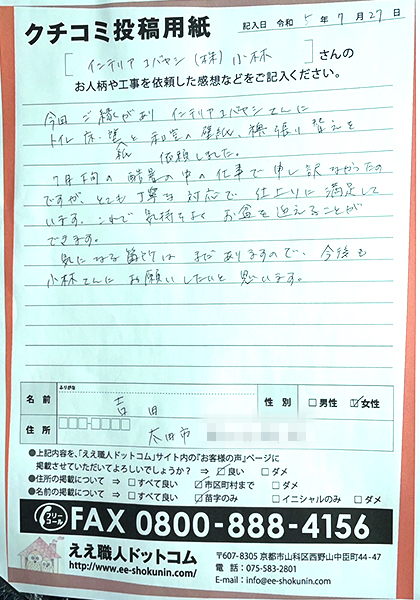 クチコミ投稿用紙
記入日 令和 5年 7月27日
[インテリアコバヤシ(株)小林]さんの
お人柄や工事を依頼した感想などをご記入ください。
今回 ご縁があり インテリアコバヤシさんに
トイレ 床・壁紙と和室の壁紙、襖張り替えを
依頼しました。
7月下旬の酷暑の中の仕事で申し訳なかったの
ですが、とても丁寧な対応で 仕上りに満足して
います。これで気持ちよく お盆を迎えることが
できます。
気になる箇所は まだありますので、今後も
小林さんに お願いしたいと思います。
名前
ふりがな
吉田
性別
□男性 ☑女性
住所
太田市
●上記内容を、「ええ職人ドットコム」サイト内の『お客様の声』ページに
掲載させていただいてよろしいでしょうか? ⇒ ☑良い □ダメ
●住所の掲載について ⇒ □すべて良い ☑市区町村まで □ダメ
●名前の掲載について ⇒ □すべて良い ☑苗字のみ □イニシャルのみ □ダメ
フリーコール FAX 0800-888-4156
ええ職人ドットコム
http://www.ee-shokunin.com/
〒607-8305 京都市山科区西野山中臣町44-47
電話:075-583-2801
E-mail:info@ee-shokunin.com